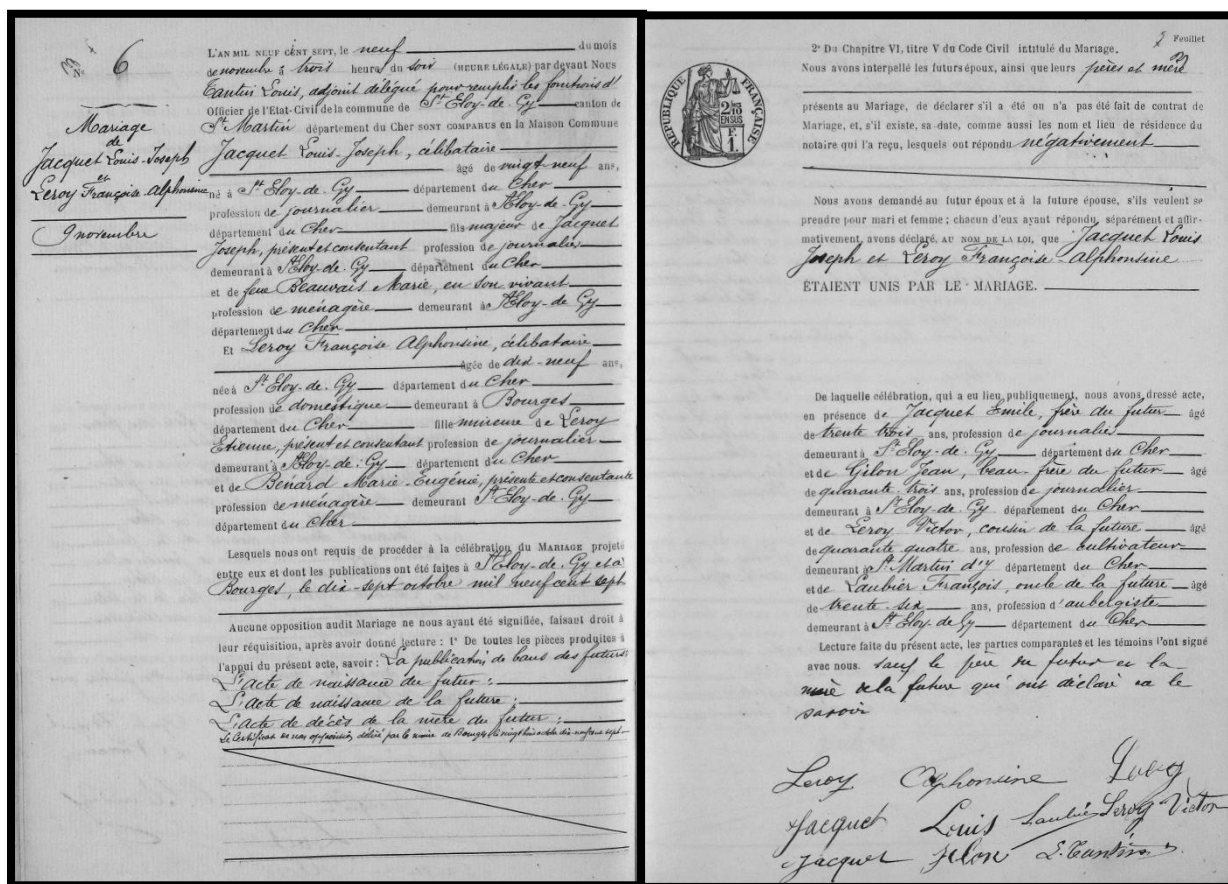 N° 6
Mariage
de
Jacquet Louis-Joseph
et
Leroy Françoise-Alphonsine
9 novembre
L'AN MIL NEUF CENT SEPT, le neuf du mois
de novembre à trois heure du soir (HEURE LÉGALE) par devant Nous
Tantin Louis, adjoint délégué pour remplir les fonctions d'
Officier de l'Etat-Civil de la commune de St Eloy-de-Gy canton de
St Martin département du Cher SONT COMPARUS en la Maison Commune
Jacquet Louis-Joseph, célibataire
âgé de vingt neuf ans,
né à St Eloy-de-Gy département du Cher
profession de journalier demeurant à St Eloy-de-Gy
département du Cher fils majeur de Jacquet
Joseph, présent et consentant profession de journalier
demeurant à St Eloy-de-Gy département du Cher
et de feue Beauvais Marie, en son vivant
profession de ménagère demeurant à St Eloy-de-Gy
département du Cher
Et Leroy Françoise Alphonsine, célibataire
âgée de dix-neuf ans,
née à St Eloy-de-Gy département du Cher
profession de domestique demeurant à Bourges
département du Cher fille mineure de Leroy
Etienne, présent et consentant profession de journalier
demeurant à St Eloy-de-Gy département du Cher
et de Bénard Marie-Eugénie, présente et consentante
profession de ménagère demeurant St Eloy-de-Gy
département du Cher
Lesquels nous ont requis de procéder à la célébration du MARIAGE projeté
entre eux et dont les publications ont été faites à St Eloy-de-Gy et à
Bourges, le dix-sept octobre mil neuf cent sept
Aucune opposition audit Mariage ne nous ayant été signifiée, faisant droit à
leur réquisition, après avoir donné lecture : 1° De toutes les pièces produites à
l'appui du présent acte, savoir : La publication de bans des futurs
L'acte de naissance du futur ;
L'acte de naissance de la future ;
L'acte de décès de la mère du futur ;
Le certificat de non opposition délivré par le maire de Bourges le vingt
7 Feuillet
2° Du Chapitre VI, titre V du Code Civil intitulé du Mariage.
Nous avons interpellé les futurs époux, ainsi que leurs pères et mère
présents au Mariage, de déclarer s'il a été ou n'a pas été fait de contrat de
Mariage, et, s'il existe, sa date, comme aussi les nom et lieu de résidence du
notaire qui l'a reçu, lesquels ont répondu négativement
RÉPUBLIQUE FRANÇAISE
2/10
EN SUS
F.
1.
Nous avons demandé au futur époux et à la future épouse, s'ils veulent se
prendre pour mari et femme ; chacun d'eux ayant répondu, séparément et affir-
mativement, avons déclaré, AU NOM DE LA LOI, que Jacquet Louis
Joseph et Leroy Françoise-Alphonsine
ÉTAIENT UNIS PAR LE MARIAGE.
De laquelle célébration, qui a eu lieu, publiquement, nous avons, dressé acte,
en présence de Jacquet Emile, frère du futur âgé
de trente trois ans, profession de journalier
demeurant à St Eloy-de-Gy département du Cher
et de Gilon Jean, beau-frère du futur âgé
de quarante-trois ans, profession de journalier
demeurant à St Eloy-de-Gy département du Cher
et de Leroy Victor, cousin de la future âgé
de quarante quatre ans, profession de cultivateur
demeurant à St Martin d'y département du Cher
et de Laubier François, oncle de la future âgé
de trente-six ans, profession d'aubergiste
demeurant à St Eloy de Gy département du Cher
Lecture faite du présent acte, les parties comparantes et les témoins l'ont signé
avec nous. sauf le père du futur et la
mère de la future qui ont déclaré ne le
savoir
Leroy Alphonsine Leroy
Jacquet Louis Laubier Leroy Victor
Jacquet Jilon L. Tantin